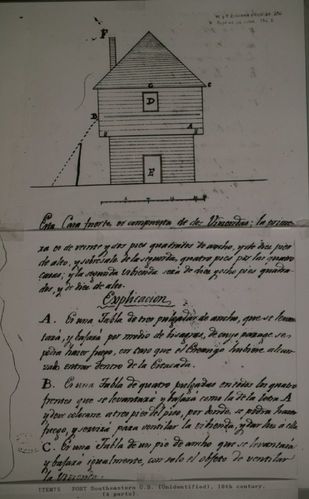 F
G
C
D
B
A
E
Esta Casa fuerte, es compuesta de dos Viviendas: la prime-
ra es de veinte y dos pies quadrados de ancho, y de diez pies
de alto, y sobresale de la segunda, quatro pies por los quatro
caras; y la segunda vivienda será de diez ocho pies quadra-
dos, y de diez de alto.
Explicacion
A. Es una Tabla de tres pulgadas de ancho, que se levan-
tará, y bajará por medio de bisagras, de cuyo parage se
podrá hacer fuego, en caso que el Enemigo hubiese
entrar dentro de la Estacada.
B. Es una Tabla de quatro pulgadas en los quatro
frentes que se levantará y bajará como la de la letra A
y fuego, y servirá para ventilar la vivienda, y dar luz a ella
C. Es una Tabla de un pie de ancho que se levantará
y bajará igualmente, con solo el objeto de ventilar
la vivienda.
TZENTS PORT Southeastern U.S. (Unidentified), 18th century.
(4 parts)